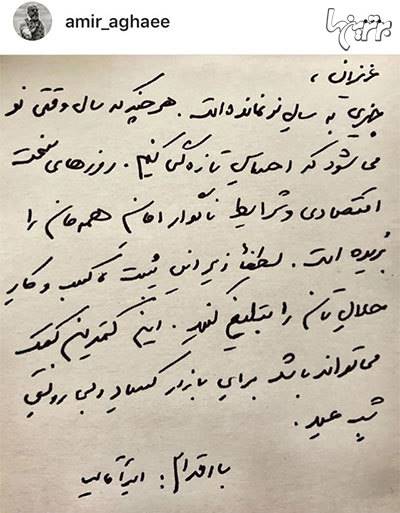 amir_aghaee
برترین‌ها
عزیزان،
چیزی به سالِ نو نمانده است. هر چند که سال وقتی نو
می‌شود که احساسِ تازه‌گی کنیم. روزهای سخت
اقتصادی و شرایط ناگوار امانِ همه‌مان را
بُریده است. لطفاً زیر این پُست، کسب و کارِ
حلالِ تان را تبلیغ کنید. این کمترین کمک
می‌تواند باشد برای بازار کساد و بی رونقِ
شبِ عید.
با احترام: امیر آقایی